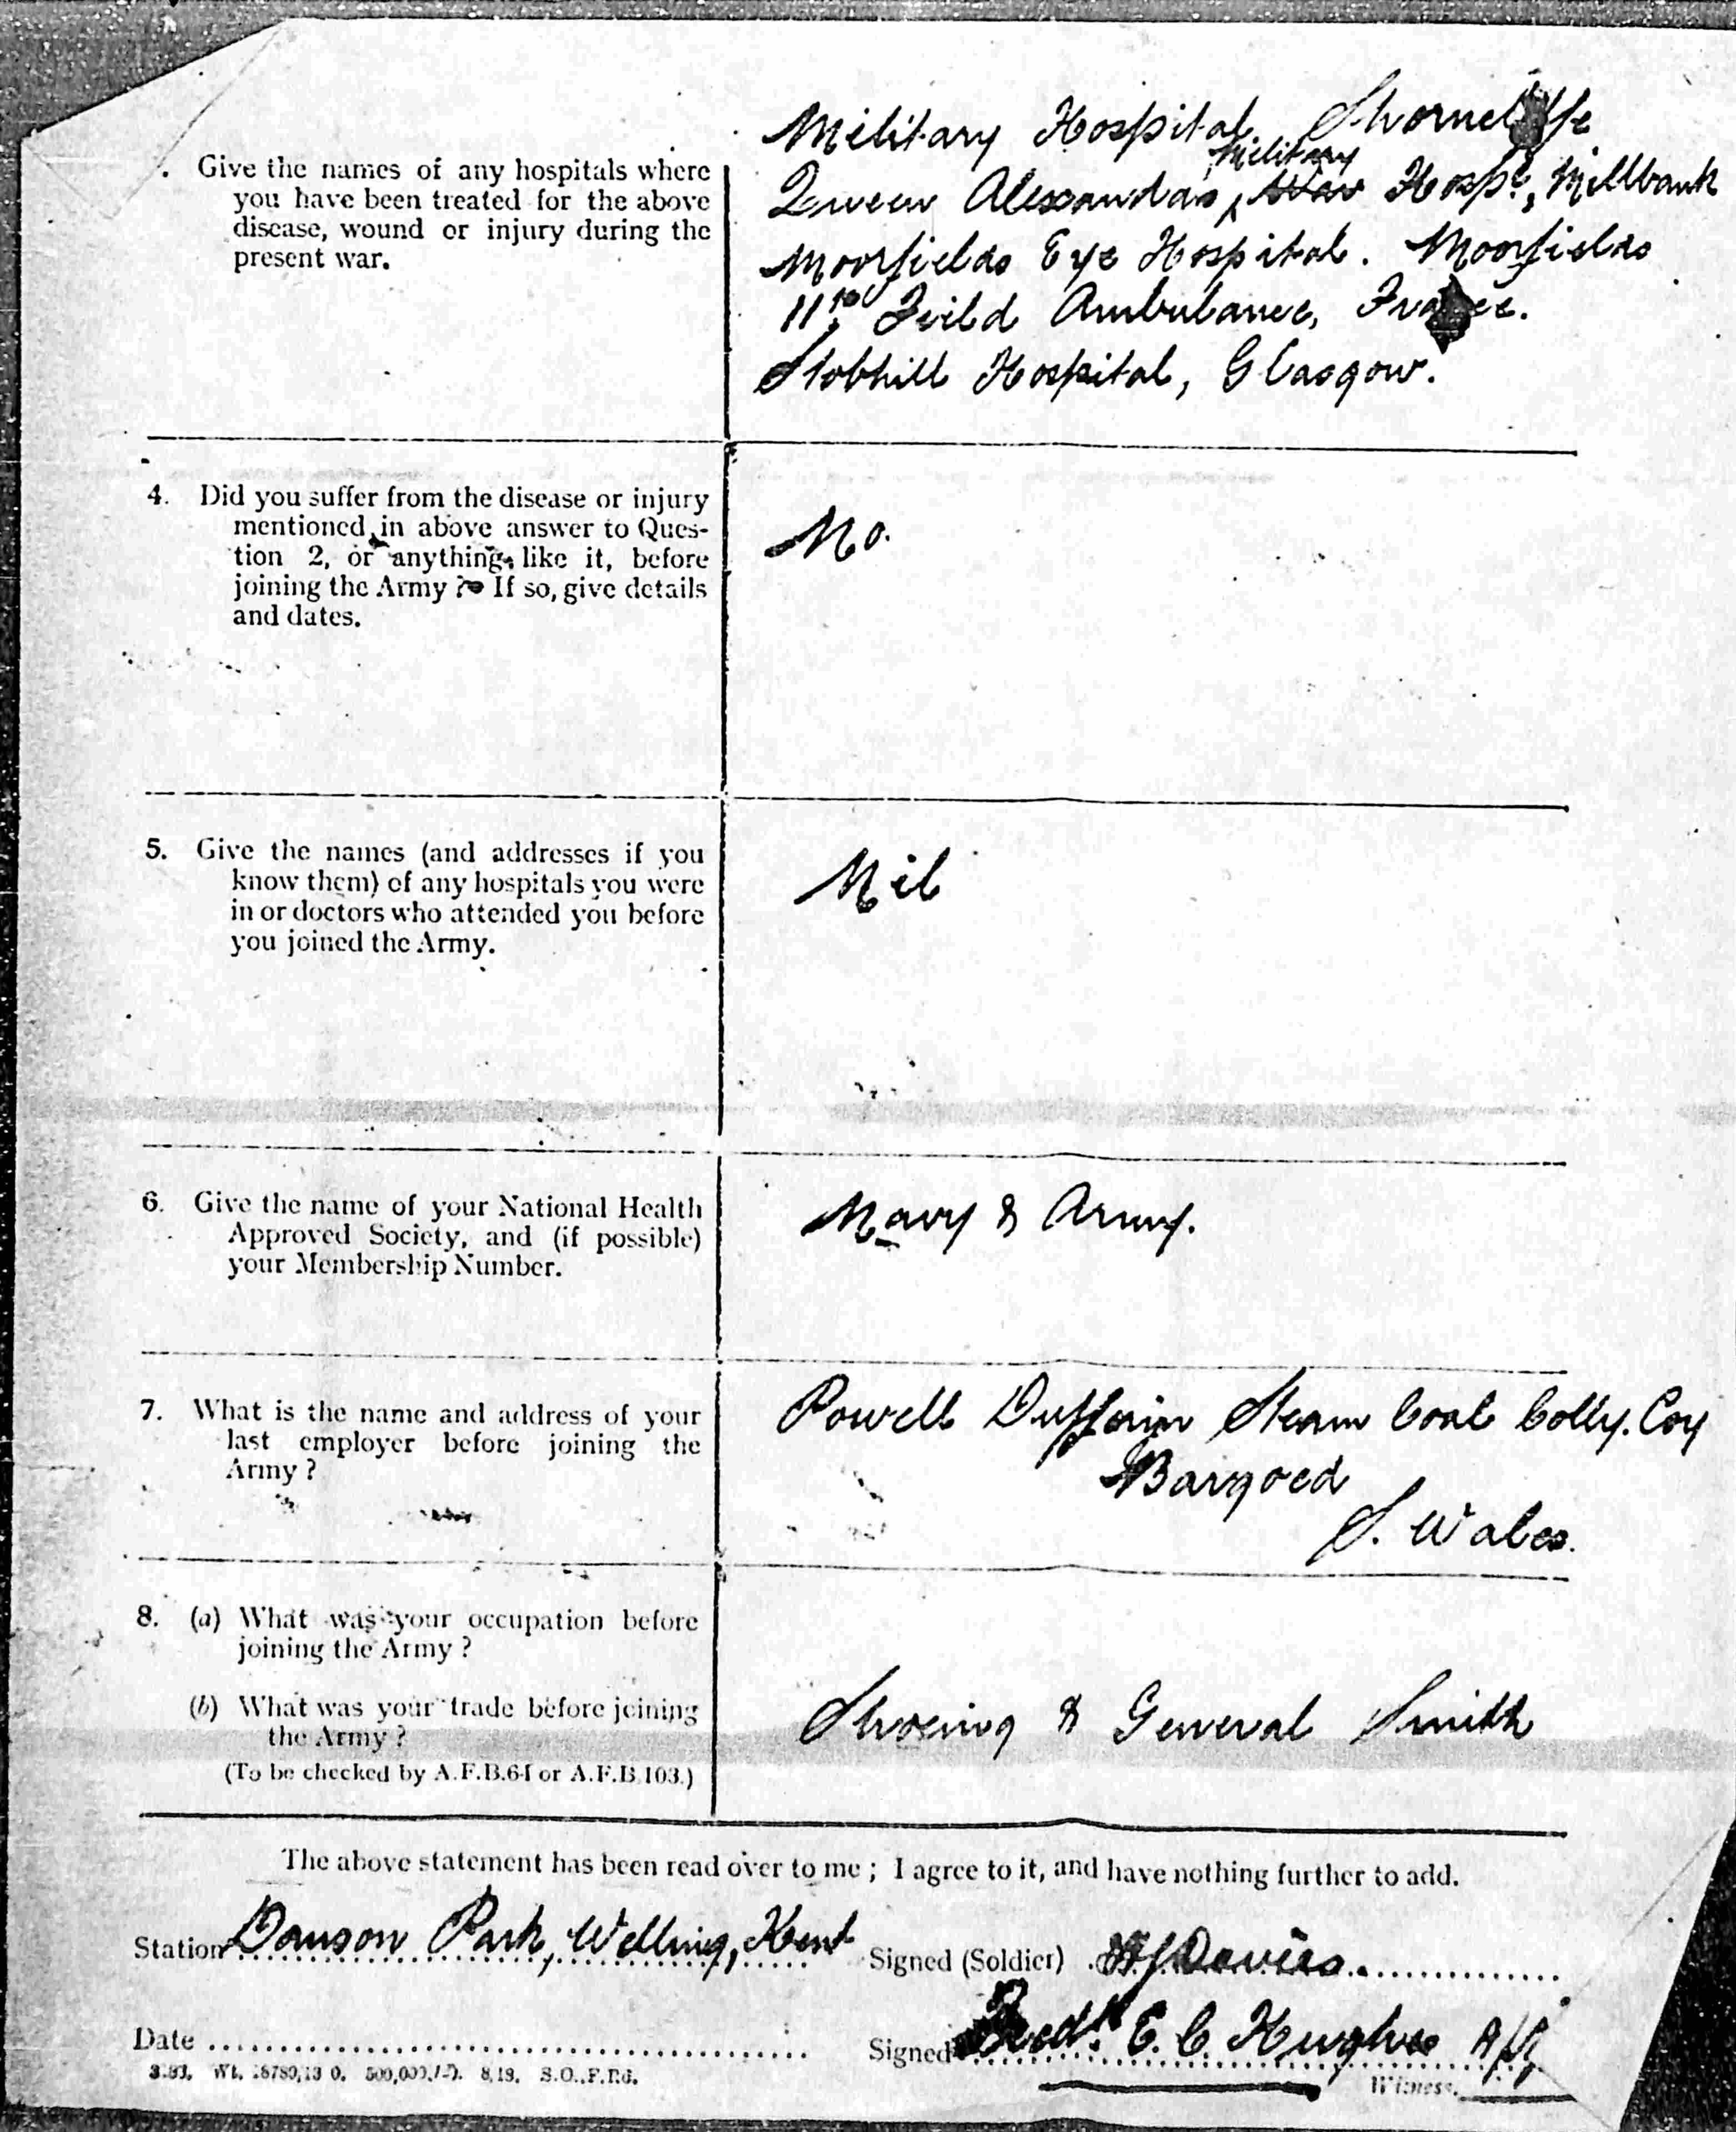 Military Hospital, Shorncliffe
. Give the names of any hospitals where
you have been treated for the above
disease, wound or injury during the
present war.
Military
Queen Alexandas, War Hospl, Millbank
Moorfields Eye Hospital. Moorfields
11th Feild Ambulance, France.
Stobhill Hospital, Glasgow.
4. Did you suffer from the disease or injury
mentioned in above answer to Ques-
tion 2, or anything like it, before
joining the Army ? If so, give details
and dates.
No.
5. Give the names (and addresses if you
know them) of any hospitals you were
in or doctors who attended you before
you joined the Army.
Nil
6. Give the name of your National Health
Approved Society, and (if possible)
your Membership Number.
Navy & Army.
7. What is the name and address of your
last employer before joining the
Army ?
Powell Duffrin Steam Coal Colly. Coy
Bargoed
S. Wales.
8. (a) What was your occupation before
joining the Army ?
(b) What was your trade before joining
the Army ?
(To be checked by A.F.B.64 or A.F.B.103.)
Shoeing & General Smith
The above statement has been read over to me ; I agree to it, and have nothing further to add.
Station Danson Park, Welling, Kent
Signed (Soldier) Davies
Date
Signed E. C. Hughes
Witness.
500,000. 8,18. S.O.,F.Rd.